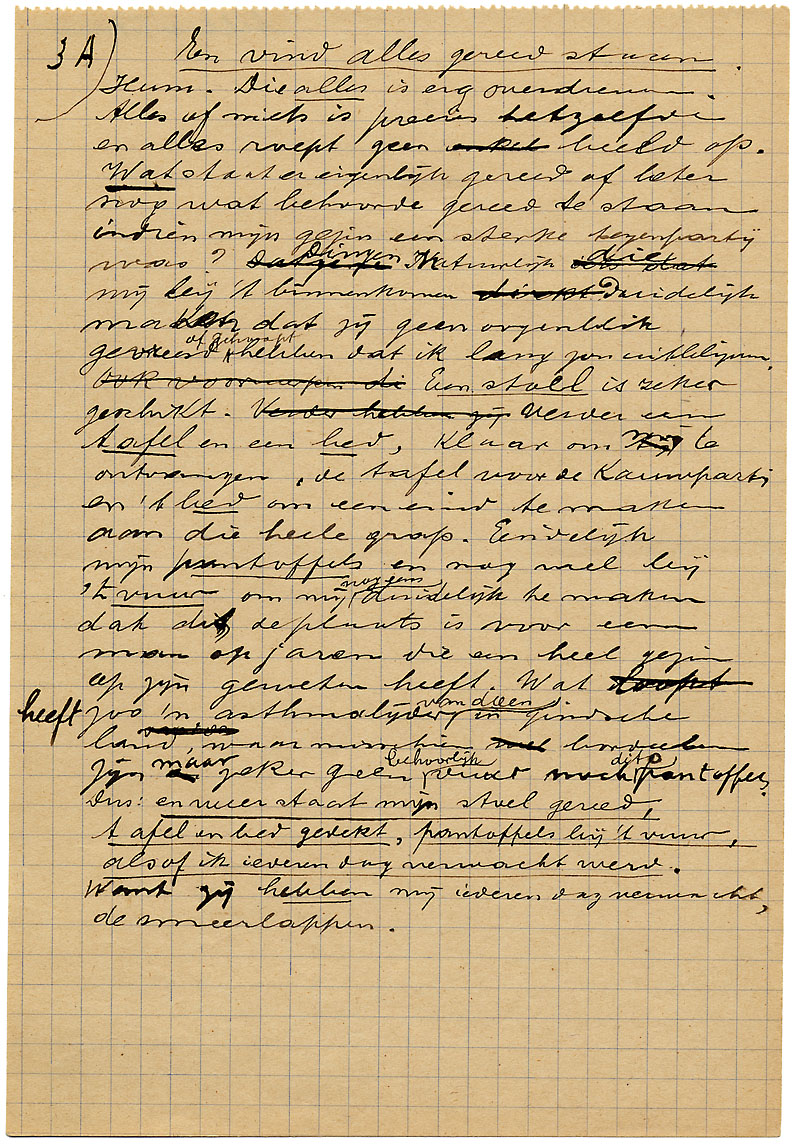 3A) En vind alles gereed staan.
Hum. Die alles is erg overdreven.
Alles of niets is precies hetzelfde
en alles roept geen enkel beeld op.
Wat staat er eigenlijk gereed of beter
nog wat behoorde gereed te staan
indien mijn gezin een sterke tegenpartij
was? Dingen Natuurlijk die
mij bij 't binnenkomen direkt duidelijk
maken dat zij geen oogenblik
gevreesd of gehoopt hebben dat ik lang zou uitblijven.
Ook voorwerpen die Een stoel is zeker
geschikt. Verder hebben zij Verder een
tafel en een bed, klaar om mij te
ontvangen, de tafel voor de Kauwpartij
en 't bed om een eind te maken
aan die heele grap. Eindelijk
mijn pantoffels en nog wel bij
't vuur om mij nog eens duidelijk te maken
dat dit de plaats is voor een
man op jaren die een heel gezin
op zijn geweten heeft. Wat loopt
heeft zoo 'n asthmalijder van dien in gindsche
land, waar misschien wel bordeelen
zijn maar zeker geen behoorlijk vuur noch dito pantoffels.
Dus: en weer staat mijn stoel gereed,
tafel en bed gedekt, pantoffels bij 't vuur,
alsof ik iederen dag verwacht werd.
Want zij hebben mij iederen dag verwacht,
de smeerlappen.